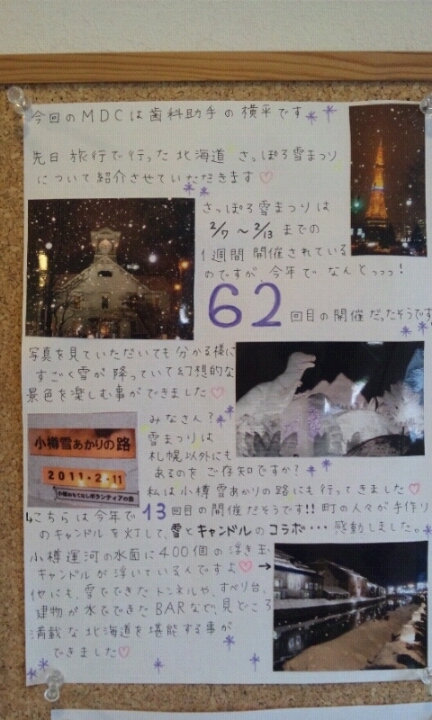 今回のMDCは歯科助手の横平です
先日 旅行で行った 北海道 さっぽろ雪まつり
について紹介させていただきます♡
さっぽろ雪まつりは
2/7 〜 2/13 までの
1週間 開催されている
のですが 今年で なんとっっっ!
62 回目の開催だったそうです
写真を見ていただいても分かる様に
すごく雪が降っていて幻想的な
景色を楽しむ事ができました♡
みなさん?
雪まつりは
札幌以外にも
あるのをご存知ですか?
私は小樽雪あかりの路にも行ってきました♡
小樽雪あかりの路
2011・2・11
小樽おもてなしボランティアの会
こちらは今年で 13回目の開催だそうです!! 町の人々が手作り
のキャンドルを灯して、雪とキャンドルのコラボ・・・感動しました。
小樽運河の水面に400個の浮き玉
キャンドルが浮いているんですよ♡→
他にも、雪でできたトンネルや、すべり台、
建物が氷でできたBARなど、見どころ
満載な北海道を堪能する事が
できました♡